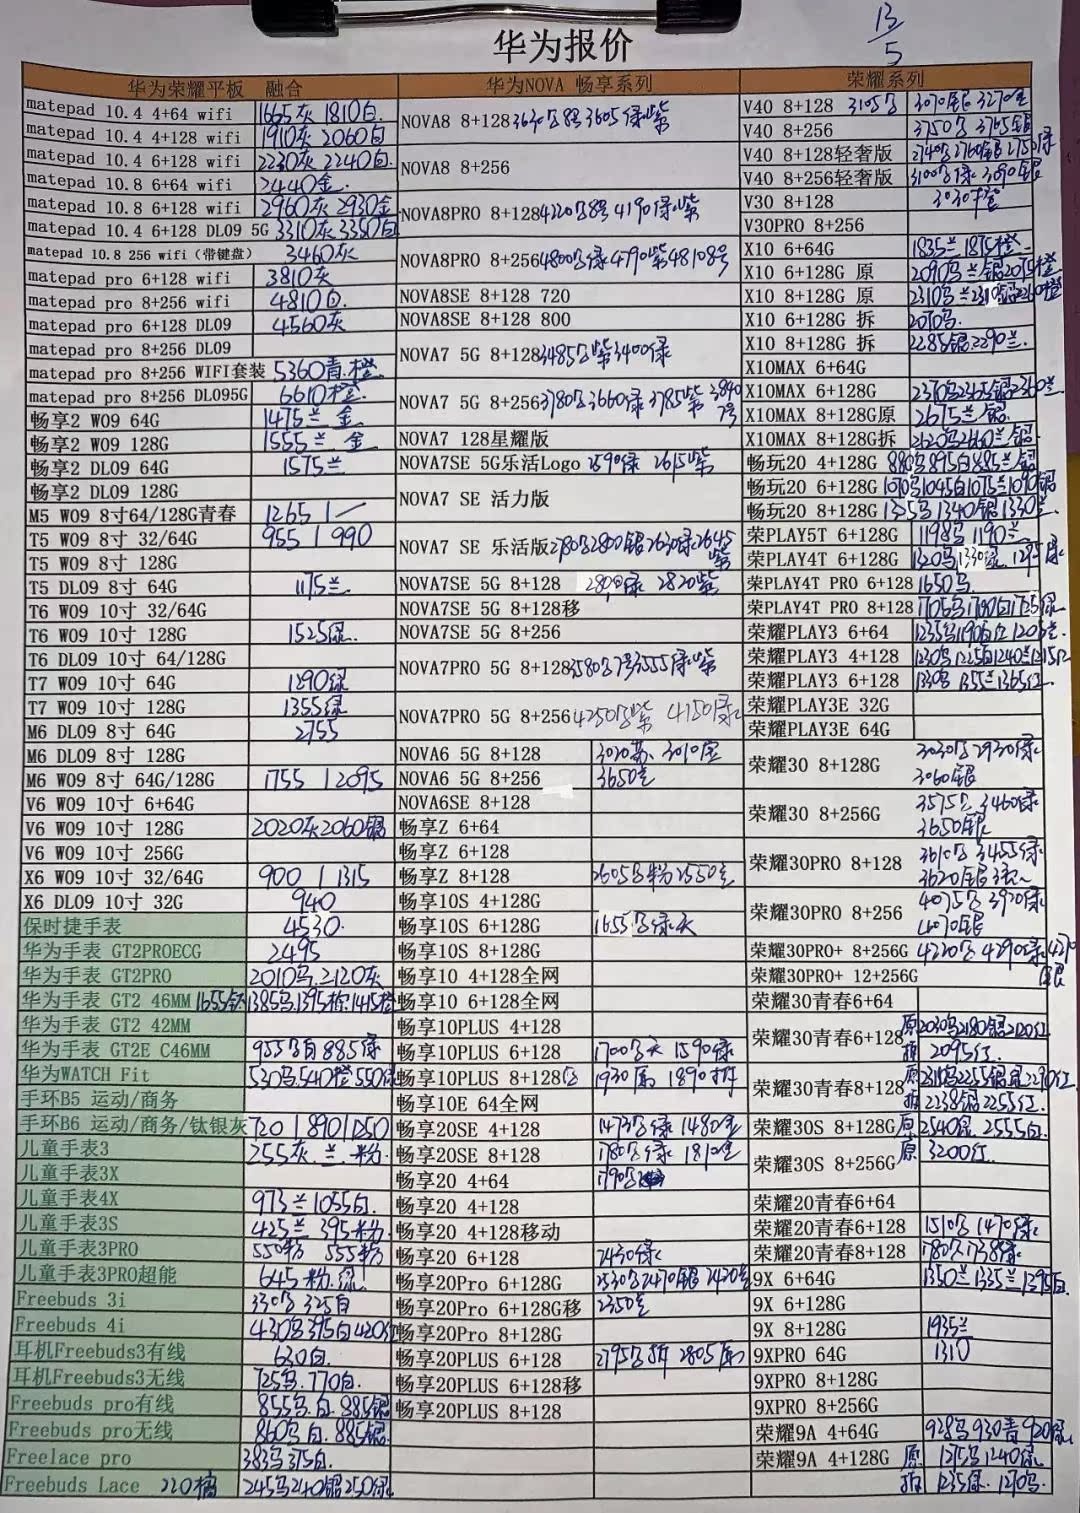 13/5
华为报价
华为荣耀平板 融合
matepad 10.4 4+64 wifi 1665灰 1810白
matepad 10.4 4+128 wifi 1910灰 2060白
matepad 10.4 6+128 wifi 2230灰 2240白
matepad 10.8 6+64 wifi 2440金
matepad 10.8 6+128 wifi 2960灰 2930金
matepad 10.4 6+128 DL09 5G 3310灰 3350白
matepad 10.8 256 wifi(带键盘) 3460灰
matepad pro 6+128 wifi 3810灰
matepad pro 8+256 wifi 4810白
matepad pro 6+128 DL09 4560灰
matepad pro 8+256 DL09
matepad pro 8+256 WIFI套装 5360青.橙
matepad pro 8+256 DL095G 6610橙
畅享2 W09 64G 1475兰 金
畅享2 W09 128G 1555兰 金
畅享2 DL09 64G 1575兰
畅享2 DL09 128G
M5 W09 8寸64/128G青春 1265 / 一
T5 W09 8寸 32/64G 955 / 990
T5 W09 8寸 128G
T5 DL09 8寸 64G 1175兰
T6 W09 10寸 32/64G
T6 W09 10寸 128G 1525绿
T6 DL09 10寸 64/128G
T7 W09 10寸 64G 1290绿
T7 W09 10寸 128G 1355绿
M6 DL09 8寸 64G 2755
M6 DL09 8寸 128G
M6 W09 8寸 64G/128G 1755 / 2095
V6 W09 10寸 6+64G
V6 W09 10寸 128G 2020灰 2060银
V6 W09 10寸 256G
X6 W09 10寸 32/64G 900 / 1315
X6 DL09 10寸 32G 940
保时捷手表 4530
华为手表 GT2PROECG 2495
华为手表 GT2PRO 2010马 2120灰
华为手表 GT2 46MM 1655钛 1385马 1395棕 1415橙
华为手表 GT2 42MM
华为手表 GT2E C46MM 955马白 885绿
华为WATCH Fit 530马 540橙 550绿
手环B5 运动/商务
手环B6 运动/商务/钛银灰 720 / 890 / 1250
儿童手表3 255灰 兰 粉
儿童手表3X
儿童手表4X 973兰 1055白
儿童手表3S 425兰 395粉
儿童手表3PRO 550粉 555粉
儿童手表3PRO超能 645粉.绿
Freebuds 3i 330马 325白
Freebuds 4i 430马 395白 420红
耳机Freebuds3有线 630白
耳机Freebuds3无线 725马.770白
Freebuds pro有线 855马.白.885银
Freebuds pro无线 860马白.885银
Freelace pro 383马 375白
Freebuds Lace 220橘 245马 240银 250绿
华为NOVA 畅享系列
NOVA8 8+128 3630马8号 3605绿紫
NOVA8 8+256
NOVA8PRO 8+128 4220马8号 4190绿紫
NOVA8PRO 8+256 4800马绿 4790紫 4810 8号
NOVA8SE 8+128 720
NOVA8SE 8+128 800
NOVA7 5G 8+128 3485马紫 3400绿
NOVA7 5G 8+256 3780马 3660绿 3785紫 3840 7号
NOVA7 128星耀版
NOVA7SE 5G乐活Logo 2590绿 2615紫
NOVA7 SE 活力版
NOVA7 SE 乐活版 2780马 2800银 2630绿 2645紫
NOVA7SE 5G 8+128 绿 2820紫
NOVA7SE 5G 8+128移
NOVA7SE 5G 8+256
NOVA7PRO 5G 8+128 3580马7号 3555绿紫
NOVA7PRO 5G 8+256 4250马紫 4150绿
NOVA6 5G 8+128 3020苏 3010金
NOVA6 5G 8+256 3650
NOVA6SE 8+128
畅享Z 6+64
畅享Z 6+128
畅享Z 8+128 2605马粉 2550
畅享10S 4+128G
畅享10S 6+128G 1655马绿天
畅享10S 8+128G
畅享10 4+128全网
畅享10 6+128全网
畅享10PLUS 4+128
畅享10PLUS 6+128 1700马天 1590绿
畅享10PLUS 8+128 1930原 1890拆
畅享10E 64全网
畅享20SE 4+128 1473马绿 1480金
畅享20SE 8+128 1780马绿 1810金
畅享20 4+64 1790马
畅享20 4+128
畅享20 4+128移动
畅享20 6+128 2430绿
畅享20Pro 6+128G 2530马 2470银 2420
畅享20Pro 6+128G移 2350
畅享20Pro 8+128G
畅享20PLUS 6+128 2795马拆 2805原
畅享20PLUS 6+128移
畅享20PLUS 8+128
荣耀系列
V40 8+128 3105马 3070银 3270金
V40 8+256 3750马 3765银
V40 8+128轻奢版 2740马 2760银 275 绿
V40 8+256轻奢版 3100马绿 3090银
V30 8+128 3030橙
V30PRO 8+256
X10 6+64G 1835兰 1875橙
X10 6+128G 原 2090马兰银 2075橙
X10 8+128G 原 2310马兰 2310银 2260橙
X10 6+128G 拆 2070马
X10 8+128G 拆 2285银 2290兰
X10MAX 6+64G
X10MAX 6+128G 2370马 2365银 2340兰
X10MAX 8+128G原 2675兰银
X10MAX 8+128G拆 2620马 2660兰银
畅玩20 4+128G 880马 895白 885兰银
畅玩20 6+128G 1070马 1045白 1075兰 1090银
畅玩20 8+128G 1355马 1340银 1330兰
荣PLAY5T 6+128G 1198马 1190兰
荣PLAY4T 6+128G 1320马 1330绿 1295绿
荣PLAY4T PRO 6+128 1650马
荣PLAY4T PRO 8+128 1705马 1790白 1725绿
荣耀PLAY3 6+64 1235马 1190白红 1205兰
荣耀PLAY3 4+128 1230马 1225白 1240兰 1215红
荣耀PLAY3 6+128 1330马 1355兰 1365红
荣耀PLAY3E 32G
荣耀PLAY3E 64G
荣耀30 8+128G 3030马 2930绿 3060银
荣耀30 8+256G 3575马 3460绿 3650银
荣耀30PRO 8+128 3610马 3455绿 3620银
荣耀30PRO 8+256 4075马 3970绿 4070银
荣耀30PRO+ 8+256G 4220马 4290绿 4270银
荣耀30PRO+ 12+256G
荣耀30青春6+64
荣耀30青春6+128 原 2030马 2180银 2120红
拆 2095红
荣耀30青春8+128 原 2310马 2255银 2290红
拆 2238银 2255红
荣耀30S 8+128G 原 2540银 2555白
荣耀30S 8+256G 原 3200红
荣耀20青春6+64
荣耀20青春6+128 1510马 1470绿
荣耀20青春8+128 1780马 1738绿
9X 6+64G 1350兰 1335兰 1395白
9X 6+128G
9X 8+128G 1935兰
9XPRO 64G 1310
9XPRO 8+128G
9XPRO 8+256G
荣耀9A 4+64G 928马 930青 920绿
荣耀9A 4+128G 原 1275马 1240绿
拆 1235绿 1270马